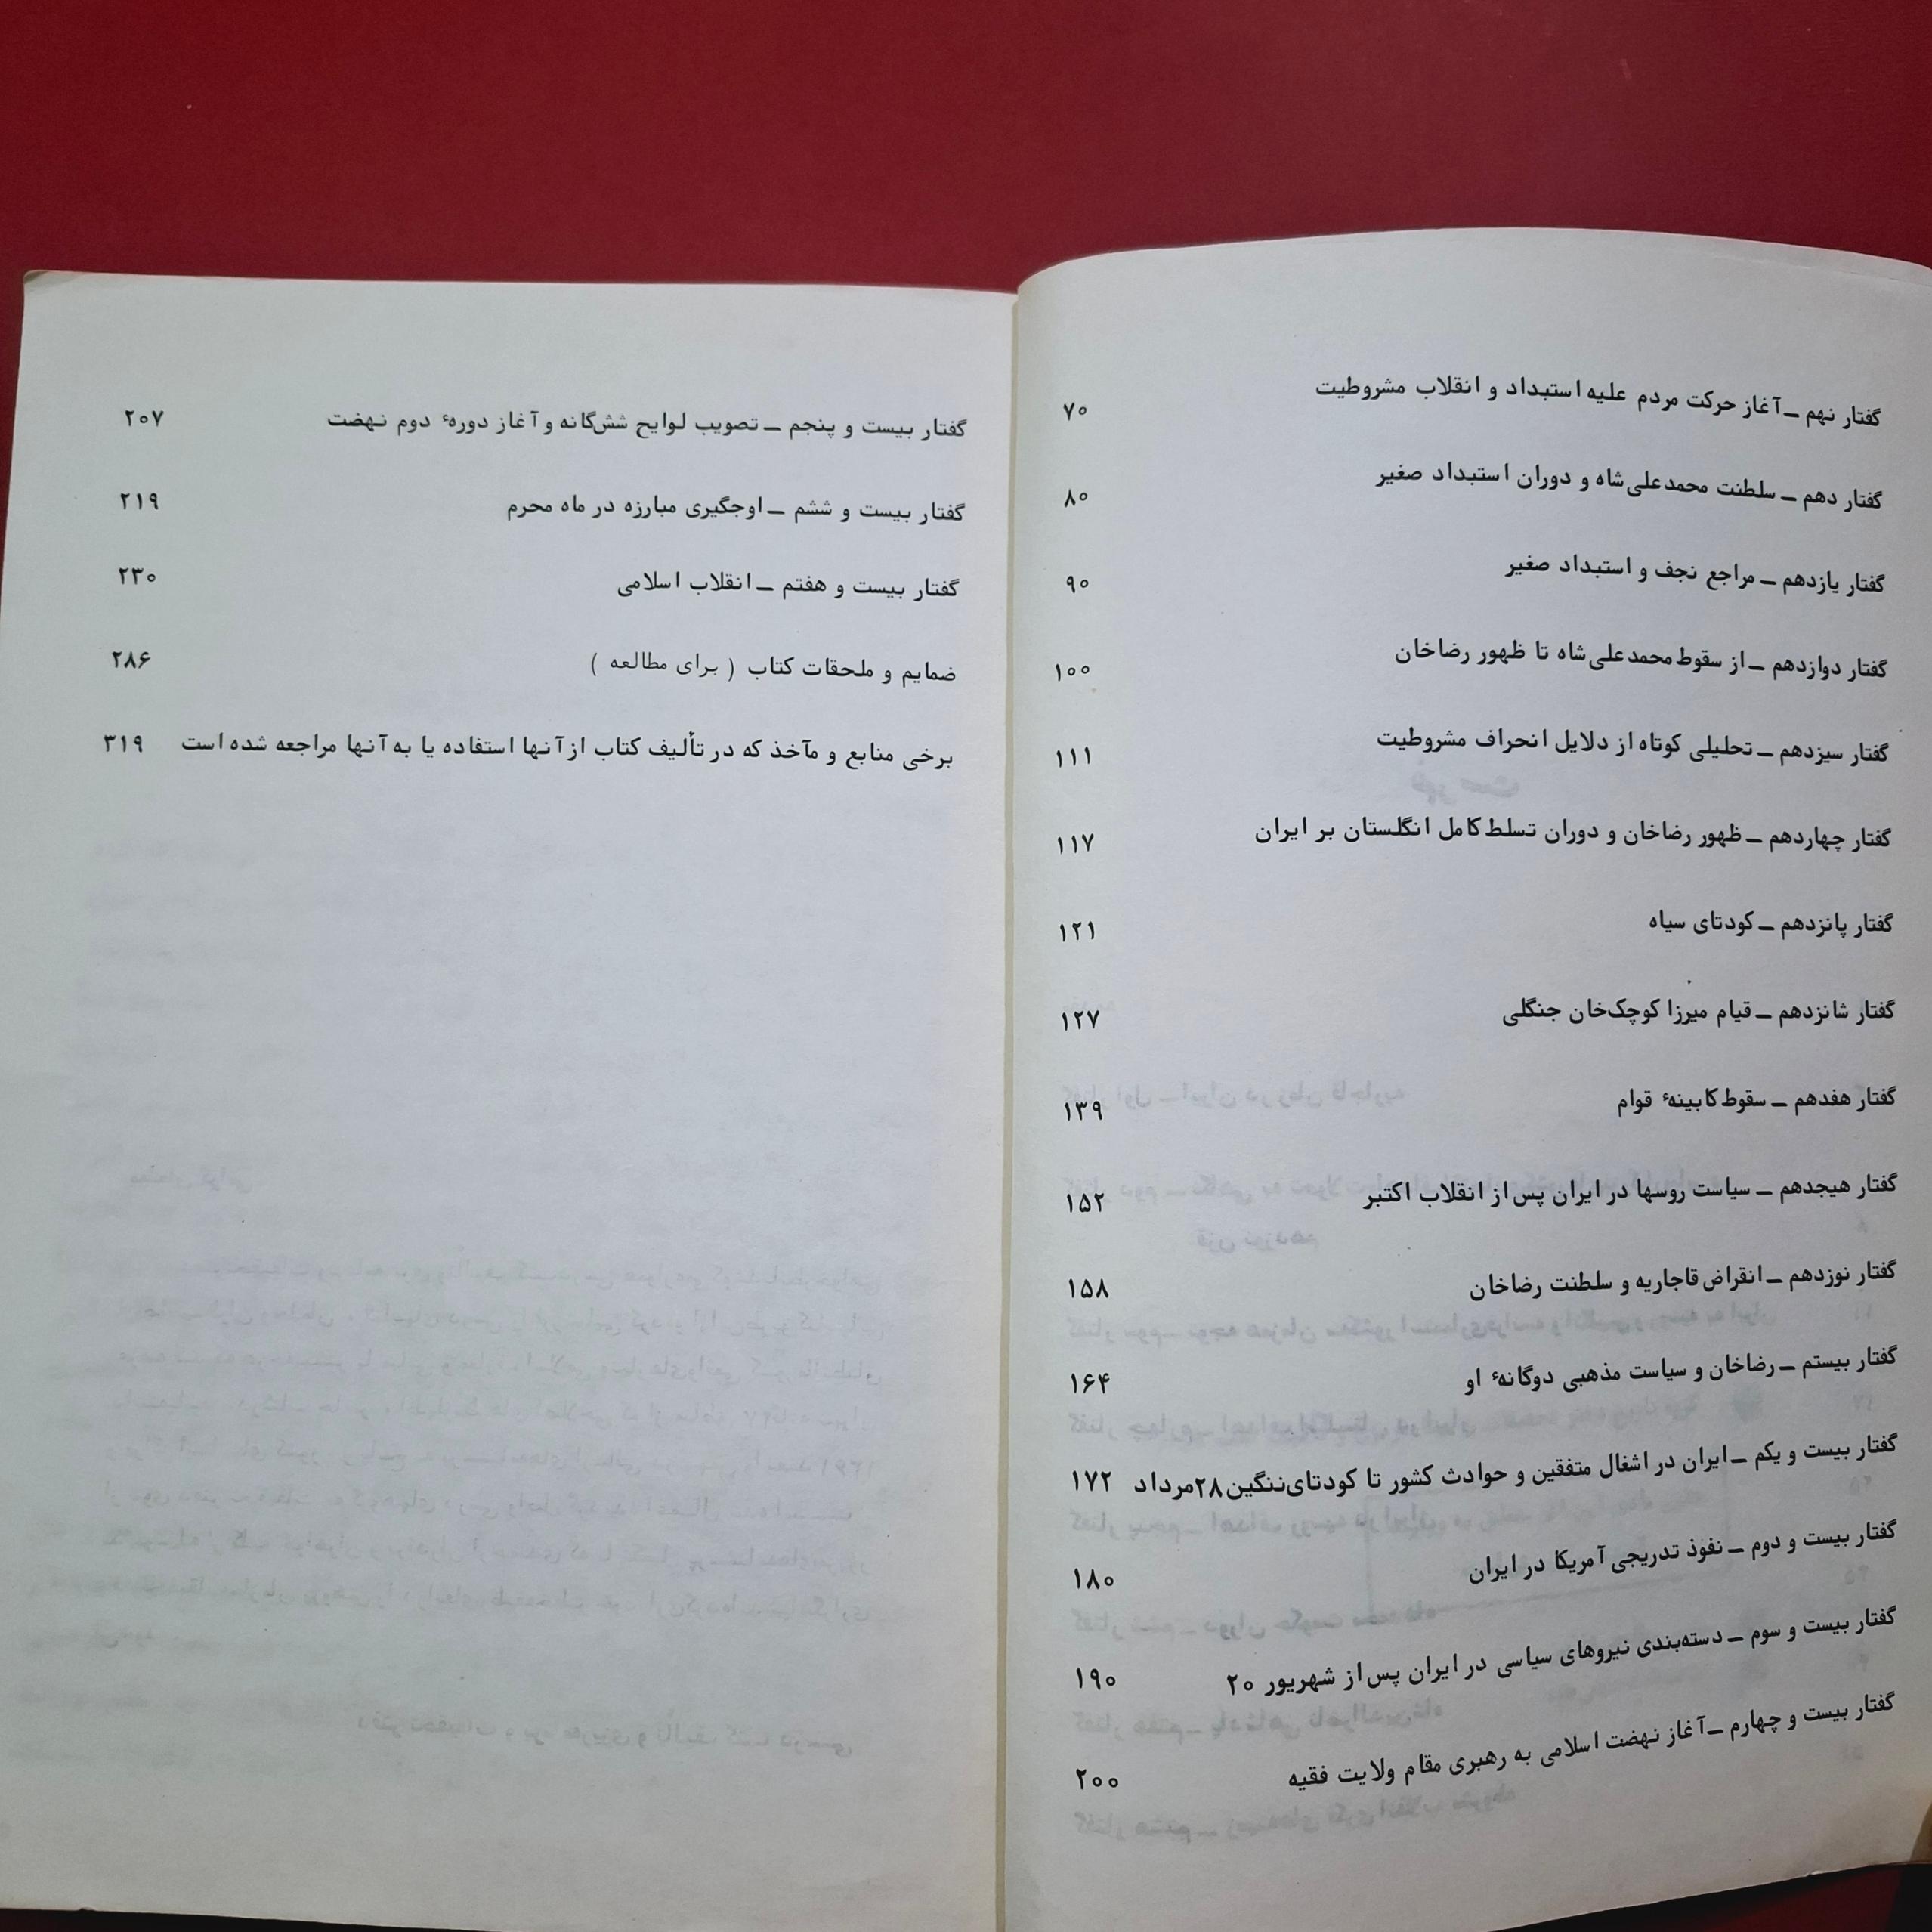 گفتار نهم ــ آغاز حرکت مردم علیه استبداد و انقلاب مشروطیت ۷۰
گفتار دهم ــ سلطنت محمدعلی‌شاه و دوران استبداد صغیر ۸۰
گفتار یازدهم ــ مراجع نجف و استبداد صغیر ۹۰
گفتار دوازدهم ــ از سقوط محمدعلی‌شاه تا ظهور رضاخان ۱۰۰
گفتار سیزدهم ــ تحلیلی کوتاه از دلایل انحراف مشروطیت ۱۱۱
گفتار چهاردهم ــ ظهور رضاخان و دوران تسلط کامل انگلستان بر ایران ۱۱۷
گفتار پانزدهم ــ کودتای سیاه ۱۲۱
گفتار شانزدهم ــ قیام میرزا کوچک‌خان جنگلی ۱۲۷
گفتار هفدهم ــ سقوط کابینهٔ قوام ۱۳۹
گفتار هیجدهم ــ سیاست روسها در ایران پس از انقلاب اکتبر ۱۵۲
گفتار نوزدهم ــ انقراض قاجاریه و سلطنت رضاخان ۱۵۸
گفتار بیستم ــ رضاخان و سیاست مذهبی دوگانهٔ او ۱۶۴
گفتار بیست و یکم ــ ایران در اشغال متفقین و حوادث کشور تا کودتای ننگین ۲۸ مرداد ۱۷۲
گفتار بیست و دوم ــ نفوذ تدریجی آمریکا در ایران ۱۸۰
گفتار بیست و سوم ــ دسته‌بندی نیروهای سیاسی در ایران پس از شهریور ۲۰ ۱۹۰
گفتار بیست و چهارم ــ آغاز نهضت اسلامی به رهبری مقام ولایت فقیه ۲۰۰
گفتار بیست و پنجم ــ تصویب لوایح شش‌گانه و آغاز دورهٔ دوم نهضت ۲۰۷
گفتار بیست و ششم ــ اوجگیری مبارزه در ماه محرم ۲۱۹
گفتار بیست و هفتم ــ انقلاب اسلامی ۲۳۰
ضمایم و ملحقات کتاب ( برای مطالعه ) ۲۸۶
برخی منابع و مآخذ که در تألیف کتاب از آنها استفاده یا به آنها مراجعه شده است ۳۱۹